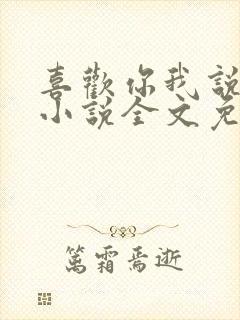 喜歡你我說
小說全文免
篤霜焉逝